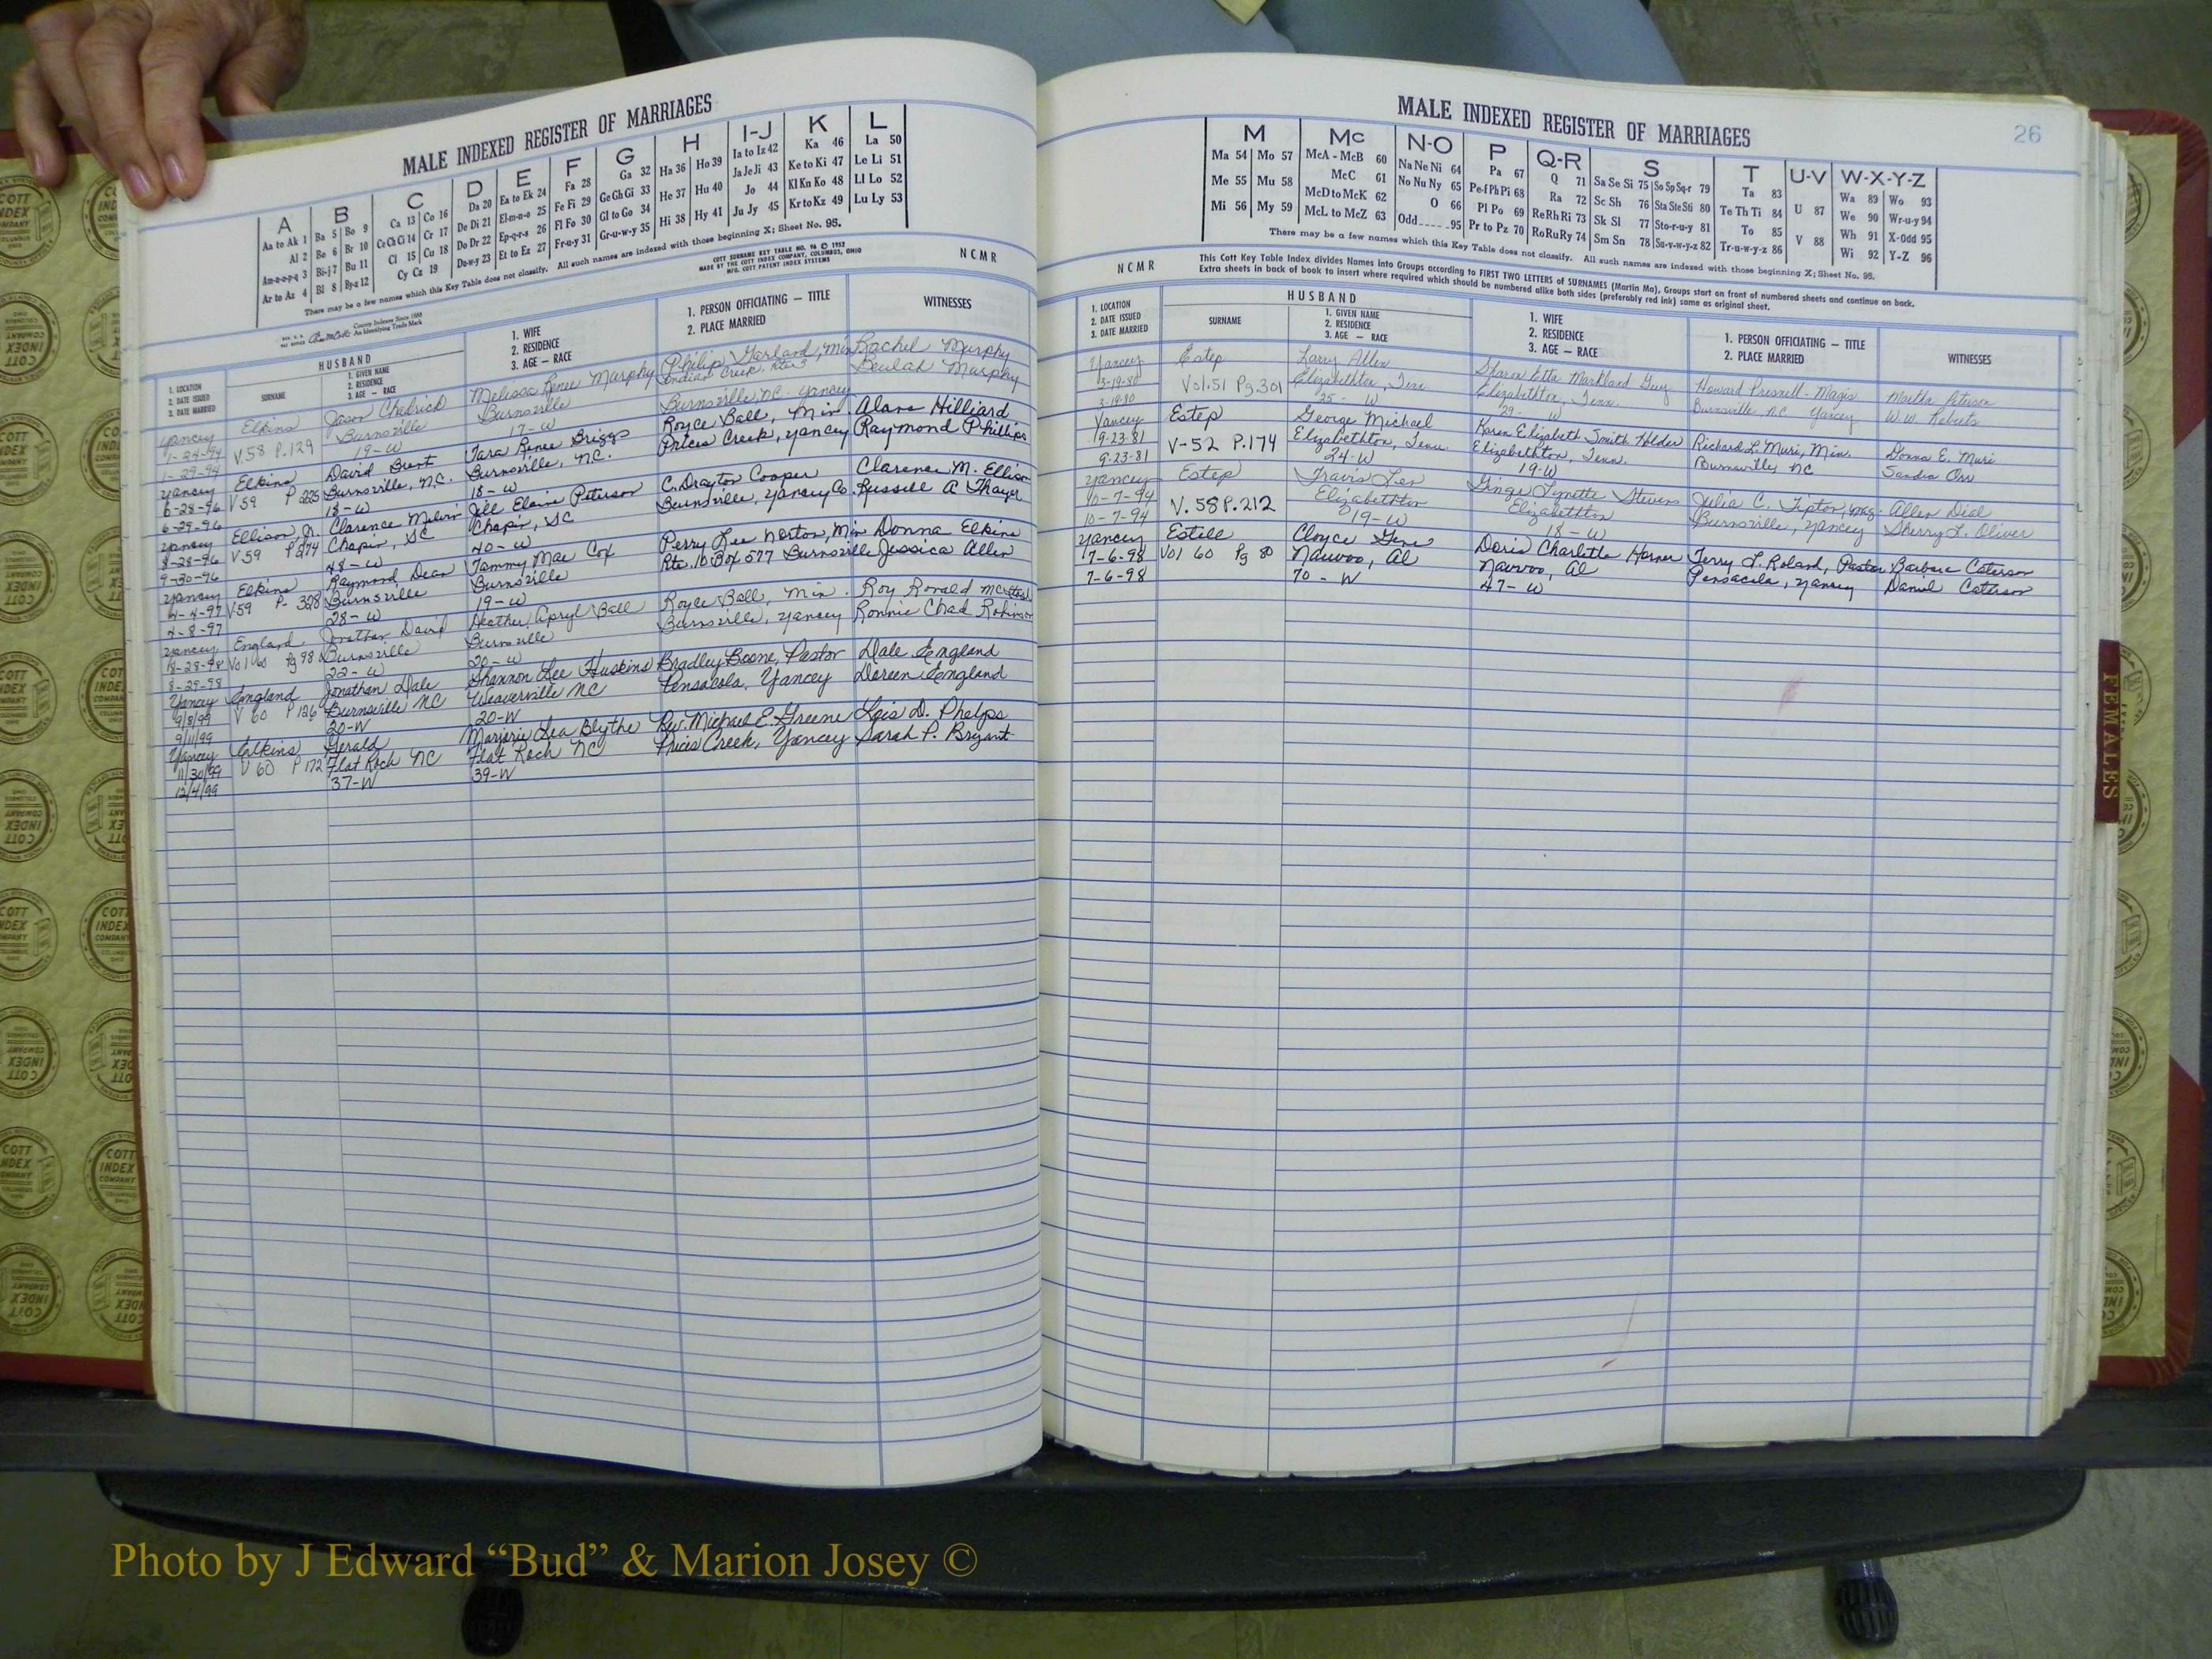 MALE INDEXED REGISTER OF MARRIAGES
A B C D E F G H I-J K L
Aa to Ak 1 Ba 5 Bo 9 Ca 13 Co 16 Da 20 Ea to Ek 24 Fa 28 Ga 32 Ha 36 Ho 39 Ia to Iz 42 Ka 46 La 50
Al 2 Be 6 Br 10 Ce Ch Ci 14 Cr 17 De Di 21 El-m-n-o 25 Fe Fi 29 Ge Gh Gi 33 He 37 Hu 40 Ja Je Ji 43 Ke to Ki 47 Le Li 51
Am-n-o-p-q 3 Bi-j 7 Bu 11 Cl 15 Cu 18 Do Dr 22 Ep-q-r-s 26 Fl Fo 30 Gl to Go 34 Hi 38 Hy 41 Jo 44 Kl Kn Ko 48 Ll Lo 52
Ar to Az 4 Bl 8 By-z 12 Cy Cz 19 Du-w-y 23 Et to Ez 27 Fr-u-y 31 Gr-u-w-y 35 Ju Jy 45 Kr to Kz 49 Lu Ly 53
There may be a few names which this Key Table does not classify. All such names are indexed with those beginning X; Sheet No. 95.
COTT SURNAME KEY TABLE NO. 96 © 1952
MADE BY THE COTT INDEX COMPANY, COLUMBUS, OHIO
MFG. COTT PATENT INDEX SYSTEMS
NCMR
County Indexes Since 1888
An Identifying Trade Mark
1. LOCATION
2. DATE ISSUED
3. DATE MARRIED
HUSBAND
SURNAME
1. GIVEN NAME
2. RESIDENCE
3. AGE — RACE
1. WIFE
2. RESIDENCE
3. AGE — RACE
1. PERSON OFFICIATING — TITLE
2. PLACE MARRIED
WITNESSES
Yancey Elkins Jason Chadrick Melissa Renee Murphy Philip Garland, Min Rachel Murphy
1-24-94 V.58 P.129 Burnsville Burnsville Indian Creek, Rte 3 Beulah Murphy
1-29-94 19-W 17-W Burnsville, NC - Yancey
Yancey Elkins David Brent Tara Renee Briggs Royce Ball, Min. Alana Hilliard
6-28-96 V59 P 225 Burnsville, N.C. Burnsville, N.C. Prices Creek, Yancey Raymond Phillips
6-29-96 18-W 18-W
Yancey Ellison Jr. Clarence Melvin Jill Elaine Peterson C. Drayton Cooper Clarence M. Ellison
8-28-96 V59 Chapin, SC Chapin, SC Burnsville, Yancey Co. Russell A Thayer
9-30-96 48-W 40-W
Yancey Elkins Raymond Dean Tammy Mae Cox Perry Lee Norton, Min Donna Elkins
4-4-97 V59 P- 398 Burnsville Burnsville Rte. 10 Box 577 Burnsville Jessica Allen
4-8-97 28-W 19-W
Yancey England Jonathan David Heather Apryl Ball Royce Ball, Min. Roy Ronald
8-28-98 Vol 60 Pg 98 Burnsville Burnsville Burnsville, Yancey Ronnie Chad Robinson
8-29-98 22-W 20-W
Yancey England Jonathan Dale Shannon Lee Huskins Bradley Boone, Pastor Dale England
9/8/99 V 60 P 126 Burnsville NC Weaverville NC Pensacola, Yancey Doreen England
9/11/99 20-W 20-W
Yancey Gerald Marjorie Lea Blythe Rev. Michael E. Greene Lois D. Phelps
11/30/99 V 60 P 172 Flat Rock NC Flat Rock NC Prices Creek, Yancey Sarah P. Bryant
12/4/99 37-W 39-W
MALE INDEXED REGISTER OF MARRIAGES
26
M Mc N-O P Q-R S T U-V W-X-Y-Z
Ma 54 Mo 57 McA - McB 60 Na Ne Ni 64 Pa 67 Q 71 Sa Se Si 75 So Sp Sq-r 79 Ta 83 U 87 Wa 89 Wo 93
Me 55 Mu 58 McC 61 No Nu Ny 65 Pe-f Ph Pi 68 Ra 72 Sc Sh 76 Sta Ste Sti 80 Te Th Ti 84 V 88 We 90 Wr-u-y 94
Mi 56 My 59 McD to McK 62 O 66 Pl Po 69 Re Rh Ri 73 Sk Sl 77 Sto-r-u-y 81 To 85 Wh 91 X-Odd 95
McL to McZ 63 Odd 95 Pr to Pz 70 Ro Ru Ry 74 Sm Sn 78 Su-v-w-y-z 82 Tr-u-w-y-z 86 Wi 92 Y-Z 96
There may be a few names which this Key Table does not classify. All such names are indexed with those beginning X; Sheet No. 95.
NCMR
This Cott Key Table Index divides Names into Groups according to FIRST TWO LETTERS of SURNAMES (Martin Ma), Groups start on front of numbered sheets and continue on back.
Extra sheets in back of book to insert where required which should be numbered alike both sides (preferably red ink) same as original sheet.
1. LOCATION
2. DATE ISSUED
3. DATE MARRIED
HUSBAND
SURNAME
1. GIVEN NAME
2. RESIDENCE
3. AGE — RACE
1. WIFE
2. RESIDENCE
3. AGE — RACE
1. PERSON OFFICIATING — TITLE
2. PLACE MARRIED
WITNESSES
Yancey Estep Larry Allen Sharon Etta Markland Guy Howard Presnell - Magis Martha Peterson
3-19-80 Vol.51 Pg.301 Elizabethton, Tenn Elizabethton, Tenn. Burnsville NC Yancey W.W. Roberts
3-19-80 25 - W 29 - W
Yancey Estep George Michael Karen Elizabeth Smith Holder Richard L. Muri, Min. Donna E. Muri
9-23-81 V-52 P.174 Elizabethton, Tenn. Elizabethton, Tenn. Burnsville, NC Sandra Orr
9-23-81 24-W 19-W
Yancey Estep Travis Lee Ginger Lynette Stevens Julia C. Tipton, Mag. Allen Dial
10-7-94 V.58 P.212 Elizabethton Elizabethton Burnsville, Yancey Sherry L. Oliver
10-7-94 19-W 18-W
Yancey Estell Cloyce Gene Doris Charlotte Horner Terry L. Roland, Pastor Barbara Caterson
7-6-98 Vol 60 Pg 80 Nauvoo, Al Nauvoo, Al Pensacola, Yancey Daniel Caterson
7-6-98 70 - W 47-W
FEMALES
Photo by J Edward “Bud” & Marion Josey ©